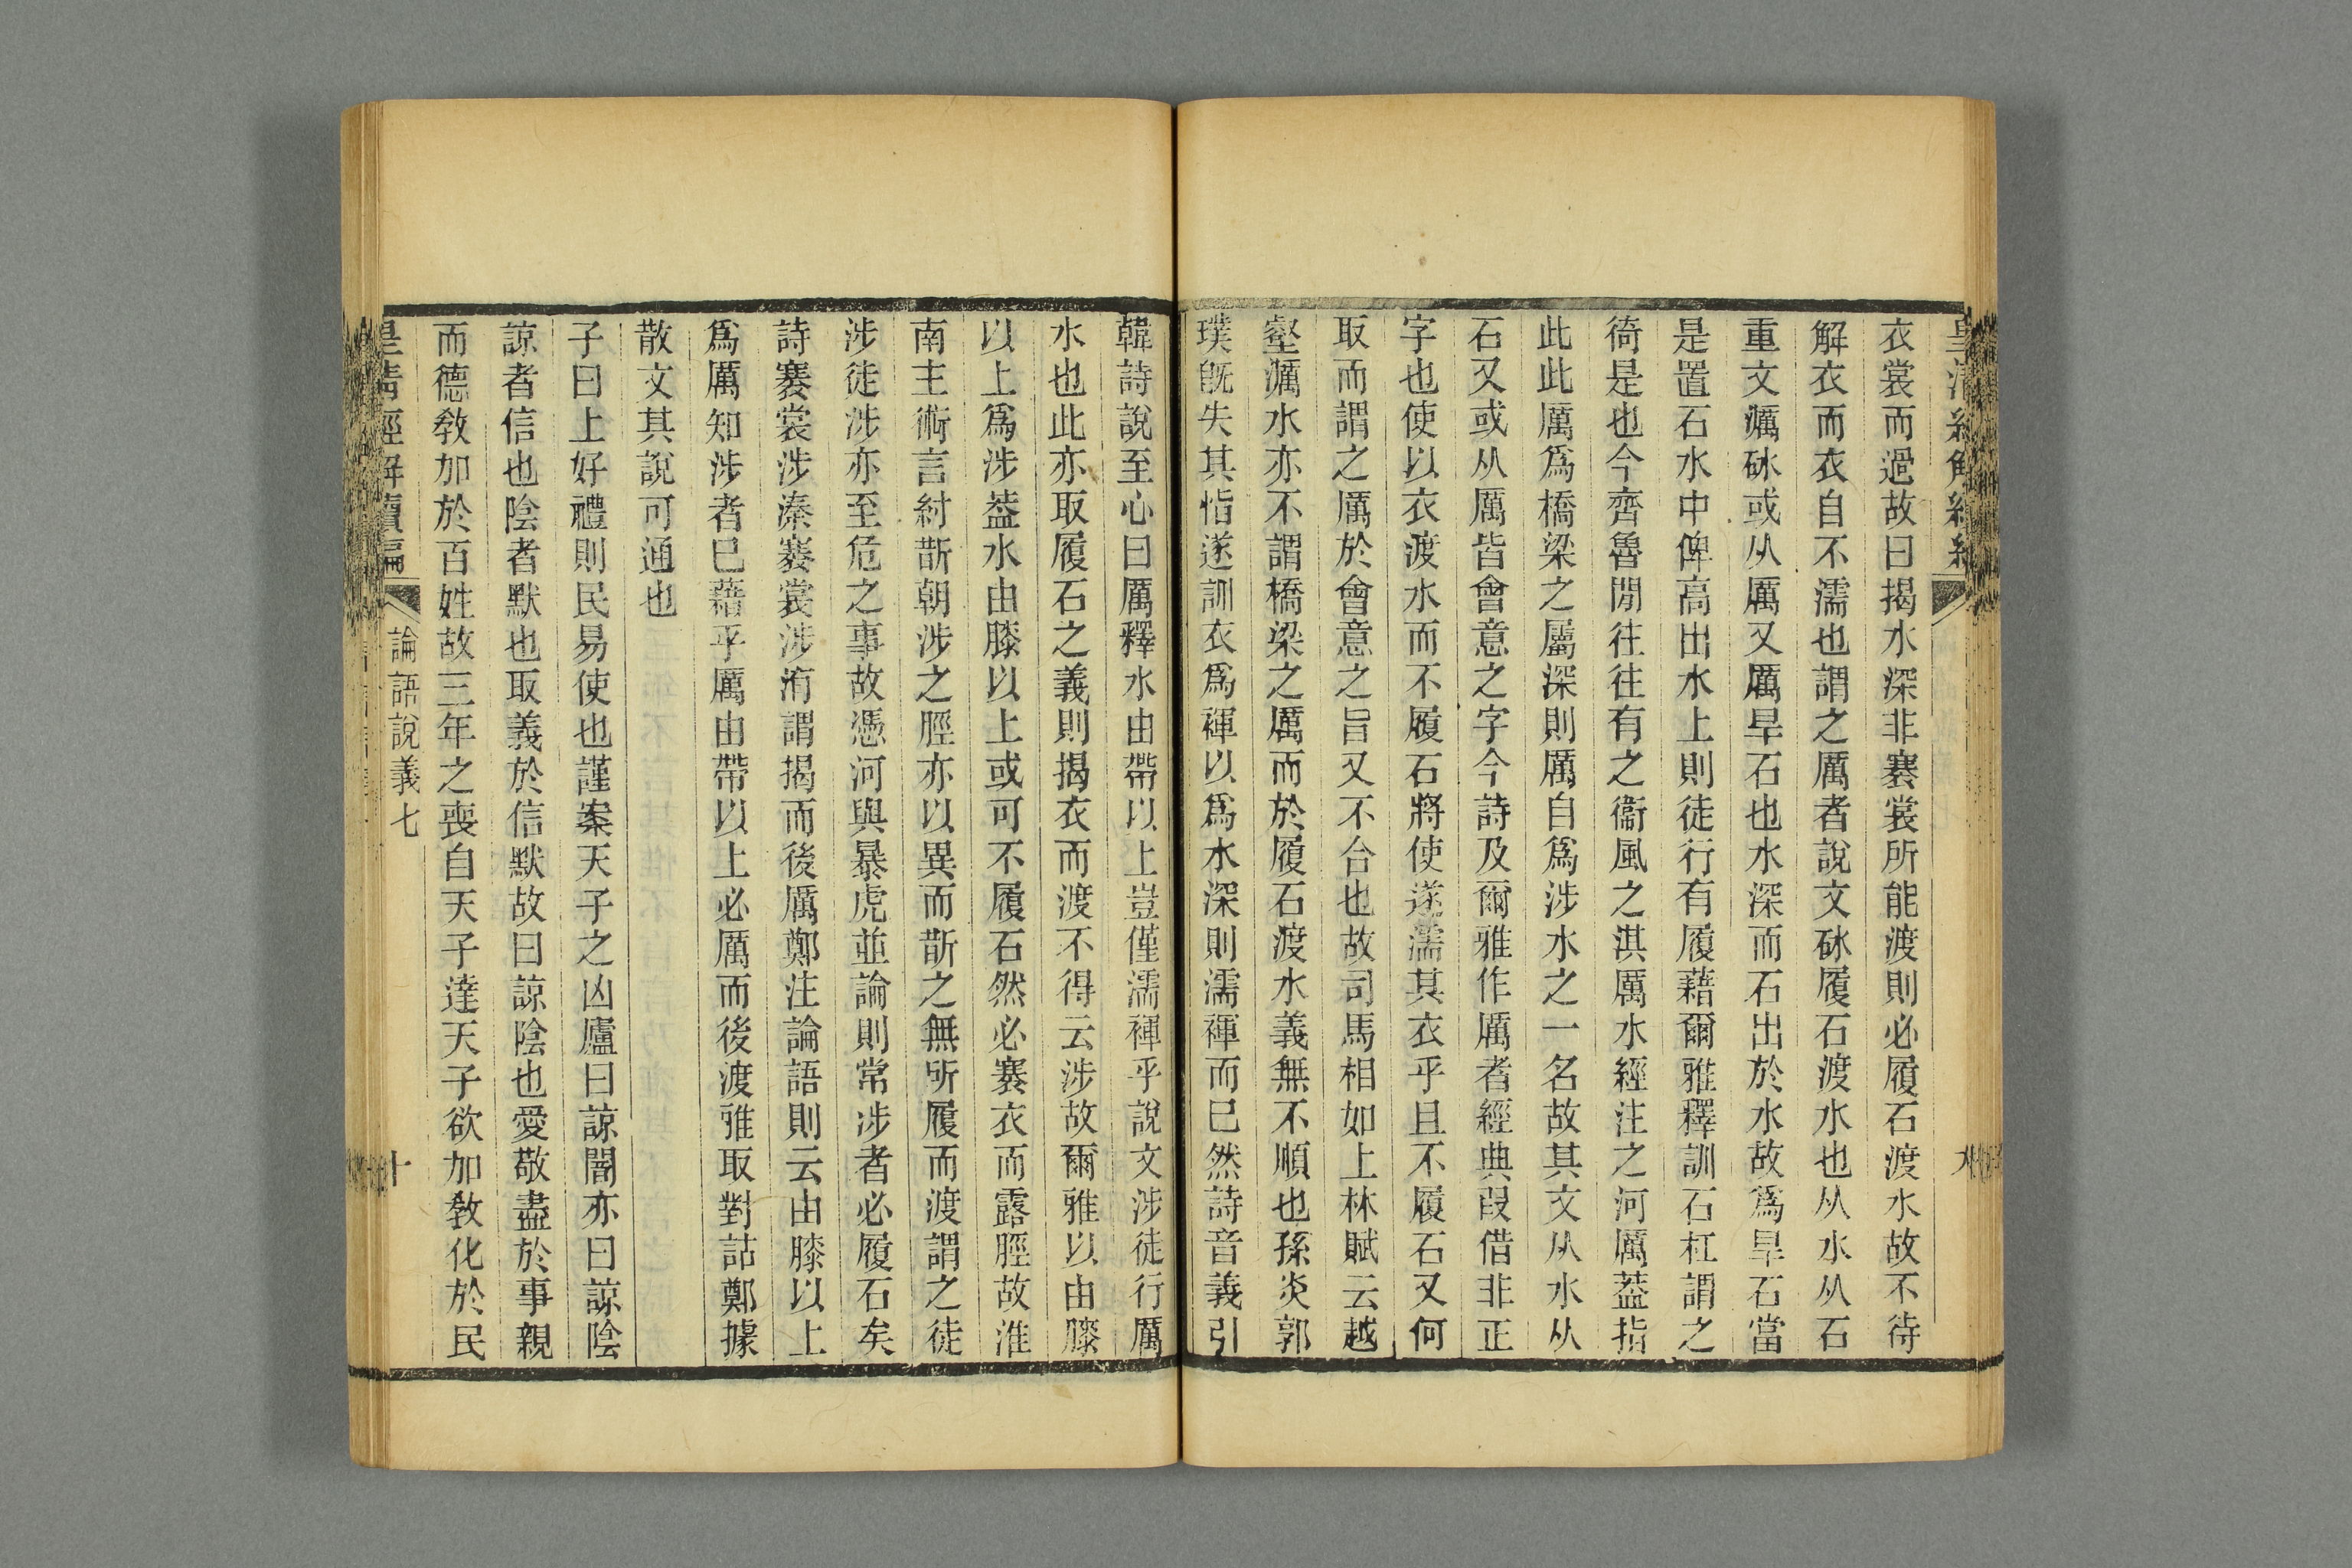 衣裳而過故曰揭水深非褰裳所能渡則必履石渡水故不待
解衣而衣自不濡也謂之厲者說文砅履石渡水也从水从石
重文濿砅或从厲又厲旱石也水深而石出於水故爲旱石當
是置石水中俾高出水上則徒行有履藉爾雅釋訓石杠謂之
徛是也今齊魯閒往往有之衞風之淇厲水經注之河厲葢指
此此厲爲橋梁之屬深則厲自爲涉水之一名故其文从水从
石又或从厲皆會意之字今詩及爾雅作厲者經典叚借非正
字也使以衣渡水而不履石將使遂濡其衣乎且不履石又何
取而謂之厲於會意之旨又不合也故司馬相如上林賦云越
壑濿水亦不謂橋梁之厲而於履石渡水義無不順也孫炎郭
璞旣失其恉遂訓衣爲褌以爲水深則濡褌而已然詩音義引
韓詩說至心曰厲釋水由帶以上豈僅濡褌乎說文涉徒行厲
水也此亦取履石之義則揭衣而渡不得云涉故爾雅以由膝
以上爲涉葢水由膝以上或可不履石然必褰衣而露脛故淮
南主術言紂斮朝涉之脛亦以異而斮之無所履而渡謂之徒
涉徒涉亦至危之事故憑河與暴虎並論則常涉者必履石矣
詩褰裳涉溱褰裳涉洧謂揭而後厲鄭注論語則云由膝以上
爲厲知涉者已藉乎厲由帶以上必厲而後渡雅取對詁鄭據
散文其說可通也
子曰上好禮則民易使也謹案天子之凶廬曰諒闇亦曰諒陰
諒者信也陰者默也取義於信默故曰諒陰也愛敬盡於事親
而德敎加於百姓故三年之喪自天子達天子欲加敎化於民
皇淸經解續編
論語說義七
十